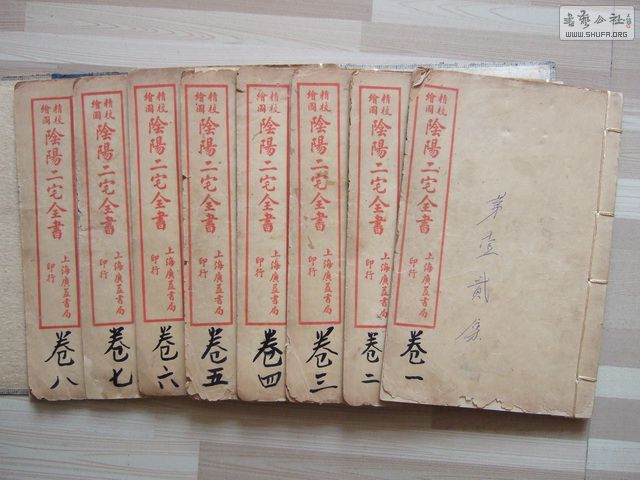 书艺公社
WWW.SHUFA.ORG
第壹貳集
精校
繪圖
陰陽二宅全書
上海廣益書局
印行
卷一
精校
繪圖
陰陽二宅全書
上海廣益書局
印行
卷二
精校
繪圖
陰陽二宅全書
上海廣益書局
印行
卷三
精校
繪圖
陰陽二宅全書
上海廣益書局
印行
卷四
精校
繪圖
陰陽二宅全書
上海廣益書局
印行
卷五
精校
繪圖
陰陽二宅全書
上海廣益書局
印行
卷六
精校
繪圖
陰陽二宅全書
上海廣益書局
印行
卷七
精校
繪圖
陰陽二宅全書
上海廣益書局
印行
卷八